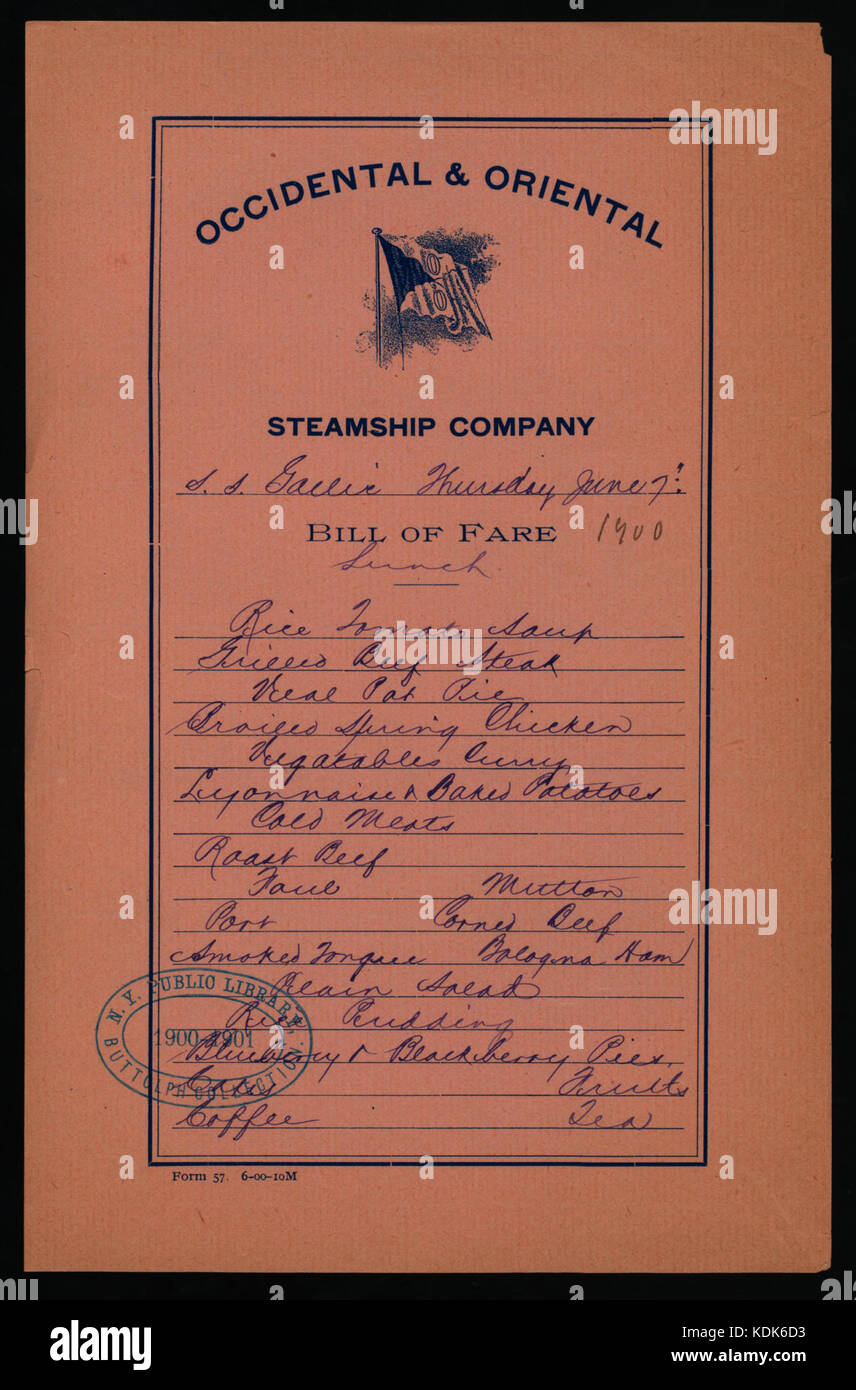 OCCIDENTAL & ORIENTAL
O
O
STEAMSHIP COMPANY
S. S. Gaelic Thursday June 7th
BILL OF FARE 1900
Lunch
Rice Tomato Soup
Grilled Beef Steak
Veal Pot Pie
Braised Spring Chicken
Vegatables Curry
Lyonnaise & Baked Potatoes
Cold Meats
Roast Beef
Foul Mutton
Pork Corned Beef
Smoked Tongue Bologna Ham
Plain Salad
Rice Pudding
Blueberry & Blackberry Pies
Fruits
Coffee Tea
N. Y. PUBLIC LIBRARY
1900-1901
BUTTOLPH COLLECTION
Form 57. 6-00-10M
alamy stock photo
alamy
KDK6D3
www.alamy.com